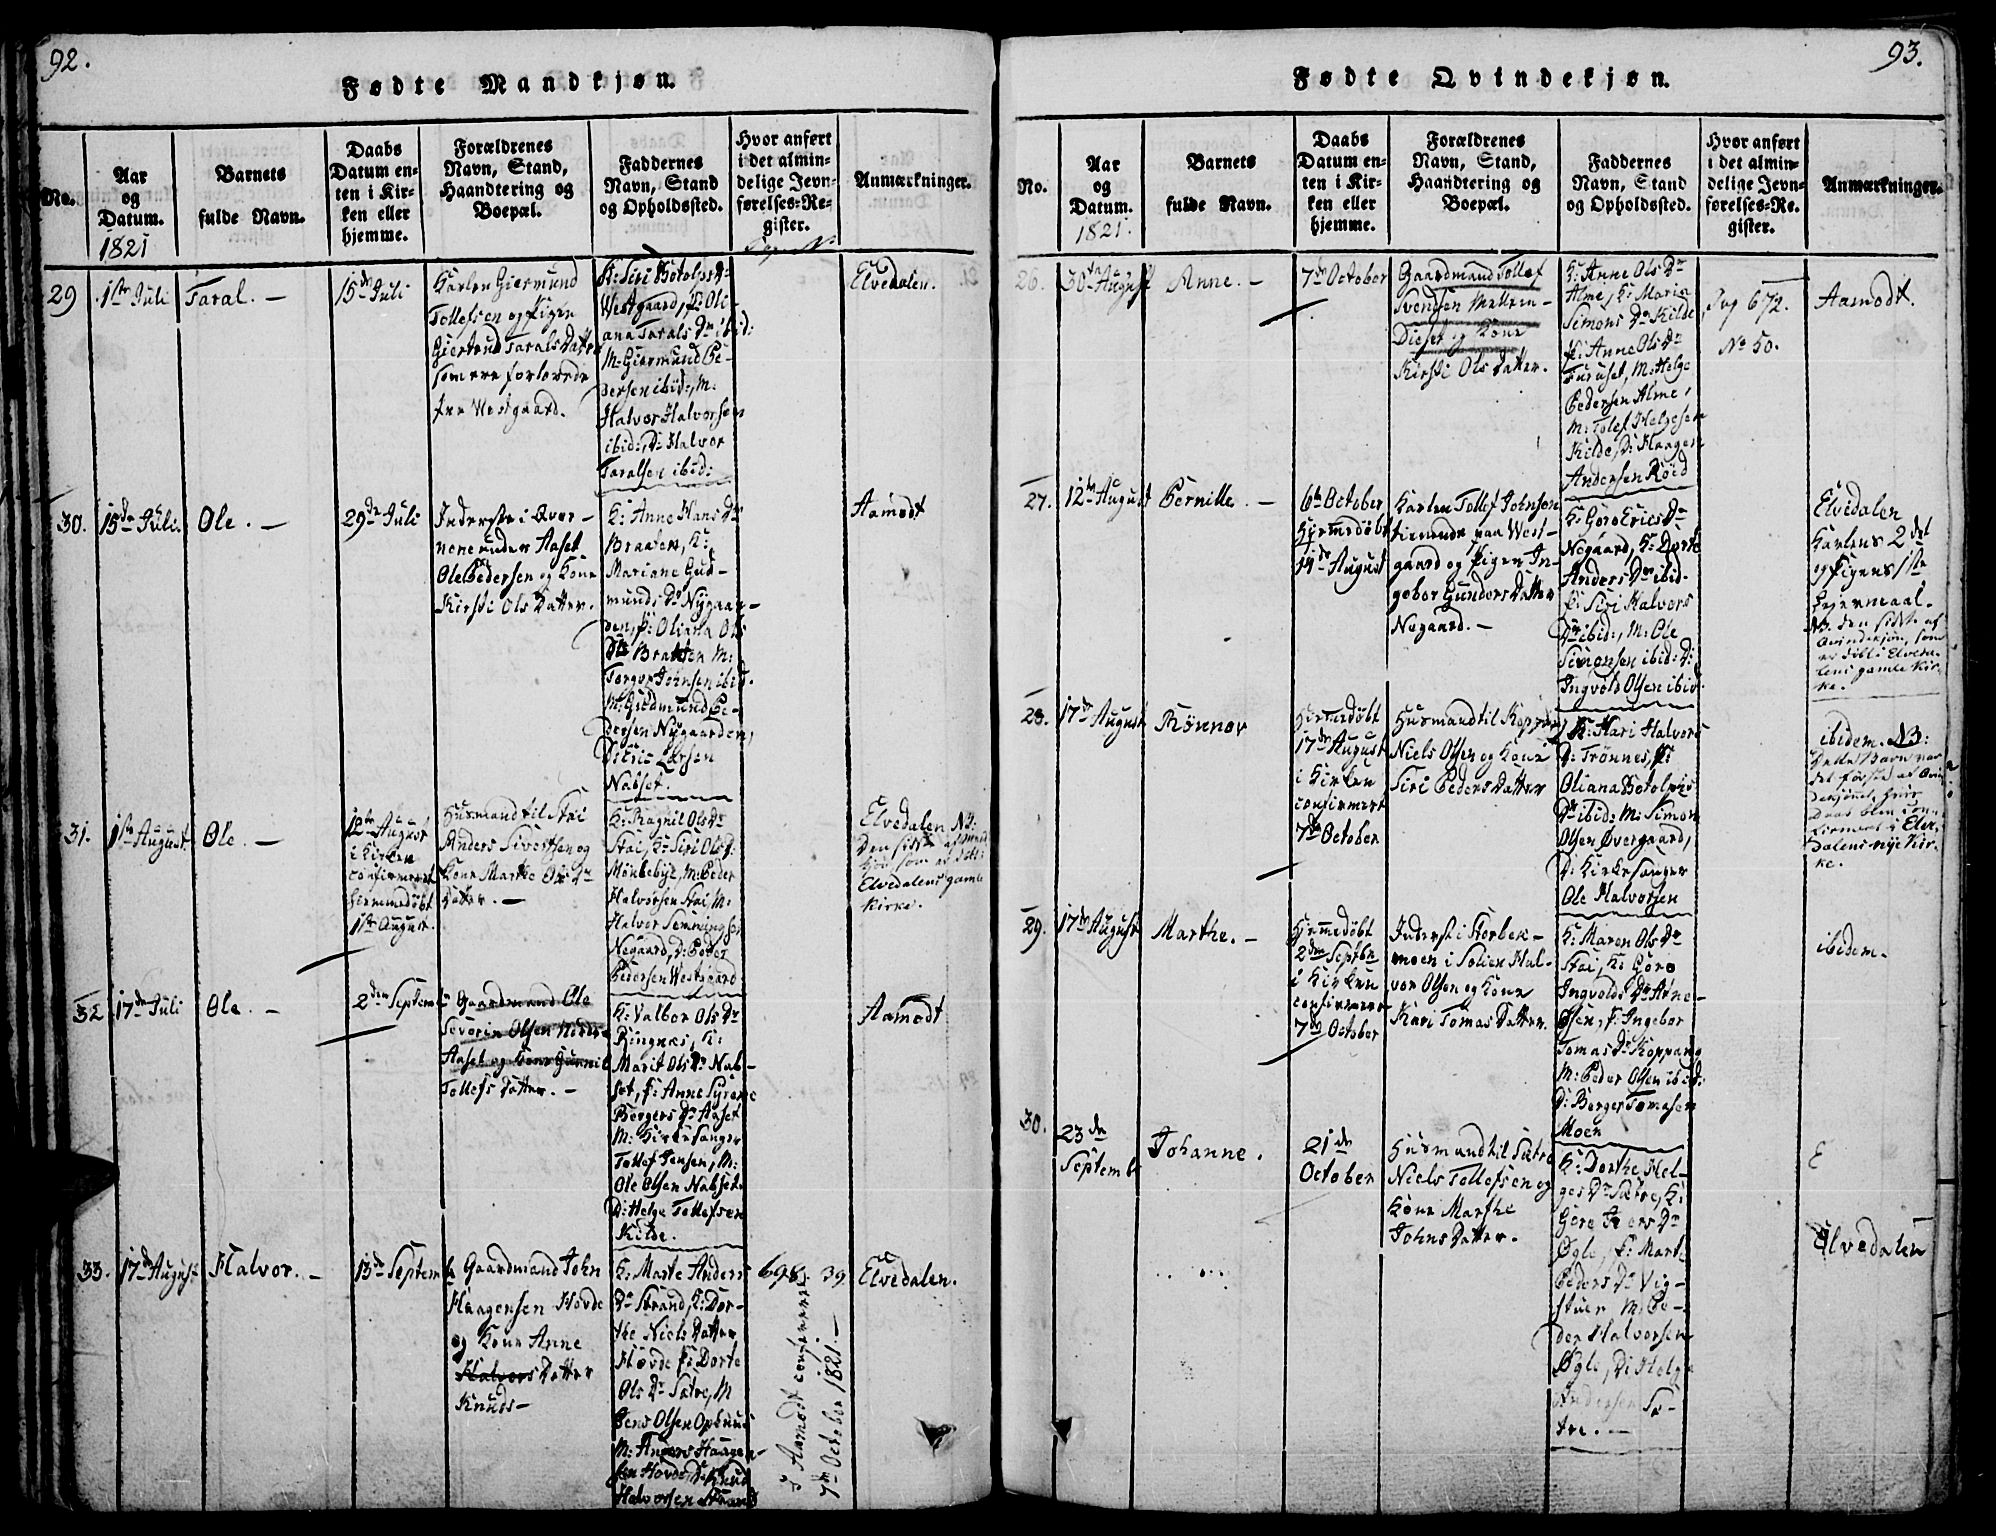 92.
Fødte Mandkjøn.
No.
Aar
og
Datum.
1821
Barnets
fulde Navn.
Daabs
Datum en-
ten i Kir-
ken eller
hjemme.
Forældrenes
Navn, Stand,
Haandtering og
Boepæl.
Faddernes
Navn, Stand
og Opholdssted.
Hvor anført
i det almin-
delige Jevn-
førelses-Re-
gister.
Anmærkninger.
29
1ste Juli
Taral. –
15de Juli
Karlen Giermund
Tollefsen og Pigen
Giertrud Tarals Datter
som ere forlovede
fra Westgaard.
K: Siri Botolps Dr
Westgaard, P: Oli-
ana Tarals Dr ibid:
M: Giermund Pe-
dersen ibid:, M:
Halvor Halvorsen
ibid:, D: Halvor
Taralsen ibid:
Elvedalen.
30.
15de Juli.
Ole. –
29de Juli
Inderste i Qver-
nene under Aaset
Ole Pedersen og Kone
Kirsti Ols Datter.
K: Anne Hans Dr
Braaten, K:
Mariane Gud-
munds Dr Nygaar-
den, P: Oliana Ols
Dr Braaten M:
Torger Johnsen ibid.
M: Gudmund Pe-
dersen Nygaarden,
Larsen
Nabset.
Aamodt
31.
1ste August
Ole. –
12te August
i Kirken
confirmeret
hjemmedøbt
1ste August.
Husmand til Stai
Anders Sivertsen og
Kone Marthe Ols
Datter. –
K: Ragnil Ols Dr
Stai, K: Siri Ols D:
Mønkebye, M: Peder
Halvorsen Stai, M:
Halvor Semmingsen
Negaard, D: Peder
Pedersen Westgaard
Elvedalen NB:
Den sidste af Mand
kjøn, som er døbt i
Elvedalens gamle
Kirke.
32
17de Juli
Ole. –
2den Septembr
Gaardmand Ole
Severin Olsen Nordre
Aaset og Kone Gunnil
Tollefs Datter. –
K: Valbor Ols Dr
Ringnæs, K:
Marit Ols Dr Nab-
set, P: Anne Syrene
Bergers Dr Aaset
M: Kirkesanger
Tollef Jensen, M:
Ole Olsen Nabset.
D: Helge Tollefsen
Kilde.
Aamodt
33.
17de August
Halvor. –
13de Septembr
Gaardmand John
Haagensen Hovde
og Kone Anne
Halvors Datter
Knuds–
K: Marte Anders
Dr Strand, K: Dor-
the Niels Datter
Hovde P: Dorte
Ols Dr Sætre, M
Jens Olsen Ophuus
M: Anders Haagen-
sen Hovde, D: Knud
Halvorsen Strand
698. 39.
I Aamodt confirmeret
7de October 1821. –
Elvedalen.
93.
Fødte Qvindekjøn.
No.
Aar
og
Datum.
1821.
Barnets
fulde Navn.
Daabs
Datum en-
ten i Kir-
ken eller
hjemme.
Forældrenes
Navn, Stand,
Haandtering og
Boepæl.
Faddernes
Navn, Stand
og Opholdssted.
Hvor anført
i det almin-
delige Jevn-
førelses-Re-
gister.
Anmærkninger.
26.
30te August
Anne. –
7de October
Gaardmand Tollef
Svendsen Mellem-
Dieset og Kone
Kirsti Ols Datter.
K: Anne Ols Dr
Alme, K: Maria
Simons Dr Kilde
P: Anne Ols Dr
Furuset, M: Helge
Pedersen Alme,
M: Tolef Helgesen
Kilde, D: Haagen
Andersen Röed
Pag 672.
No 50.
Aamodt.
27.
12te August
Pernille. –
6te October
Hjemmedøbt
14de August
Karlen Tollef Johnsen
tienende paa West-
gaard og Pigen In-
gebor Gunders Datter
Negaard. –
K: Goro Erics Dr
Negaard, K: Dorte
Anders Dr ibid.
P: Siri Halvors
Dr ibid:, M: Ole
Simonsen ibid: D:
Ingvold Olsen ibid.
Elvedalen
Karlens 2det
og Pigens 1ste
Leiermaal.
NB. den sidste af
Qvindekjøn, som
er døbt i Elveda-
lens gamle Kir-
ke.
28.
17de August
Rönnov
Hiemmedøbt
17de August
i Kirken
confirmert
7de October
Husmand til Koppang
Niels Olsen og Kone
Siri Peders Datter
K: Kari Halvors
D: Trønnes, P:
Oliana Botolphs
Dr ibid: M: Simon
Olsen Øvergaard,
D: Kirkesanger
Ole Halvorsen
ibidem. NB:
Dette Barn var
det første af Qvin
dekjønnet, hvis
Daab blev con-
firmeret i Elve-
dalens nye Kir-
ke.
29.
17de August
Marthe. –
Hjemmedøbt
2den Septbr
i Kirken
confirmeret
7de October
Inderst i Storbek-
moen i Solien Hal-
vor Olsen og Kone
Kari Tomas Datter.
K: Maren Ols Dr
Stai, K: Goro
Ingvolds Dr Arne-
Øsen, P: Ingebor
Tomas Dr Koppang
M: Peder Olsen ibid:
D: Berger Tomasen
Moen
ibidem.
30.
23de
Septembr
Johanne.
21de
October
Husmand til Sætre
Niels Tollefsen og
Kone Marthe
Johns Datter.
K: Dorthe Hel-
ges Dr Sætre, K:
Goro Ivers Dr
Øgle, P: Marte
Peders Dr Vig-
stuen M: Pe-
der Halvorsen
Øgle, D: Helge
Andersen Sæ-
tre. –
E
Elvedalen